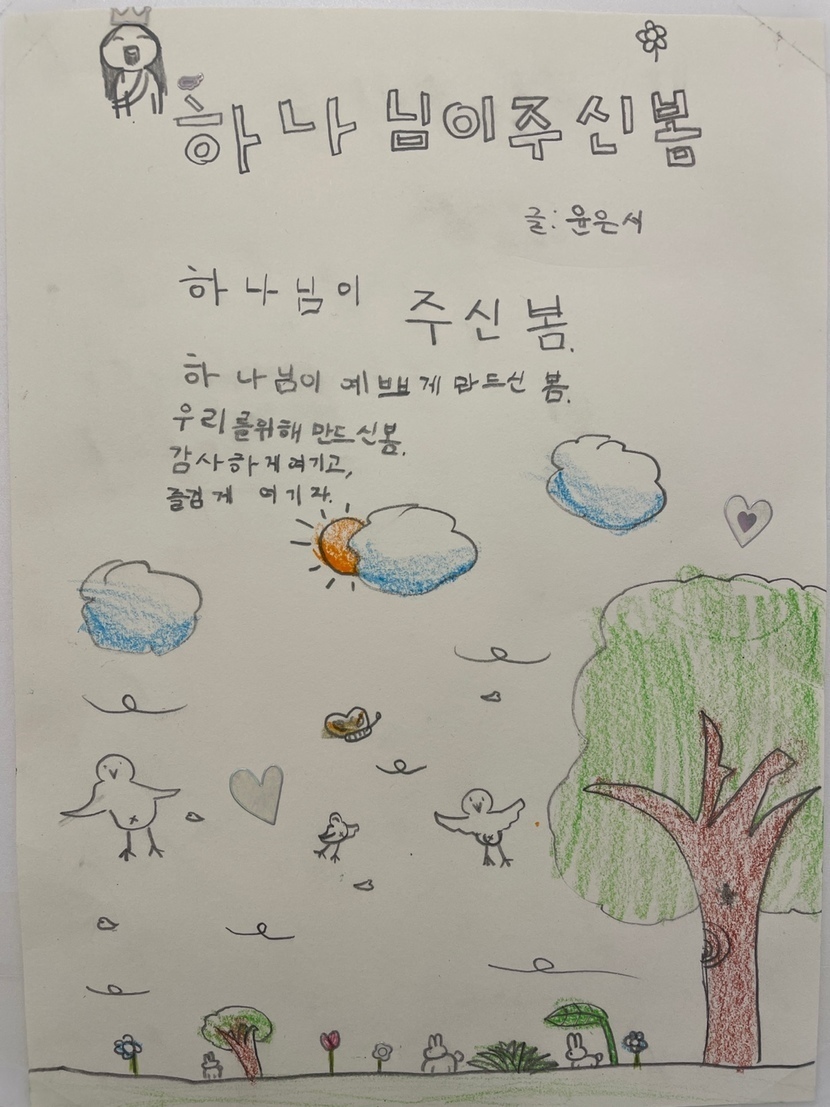 하나님이주신봄
글: 윤은서
하나님이 주신 봄.
하나님이 예쁘게 만드신 봄.
우리를위해 만드신봄.
감사하게여기고,
즐겁게 여기자.